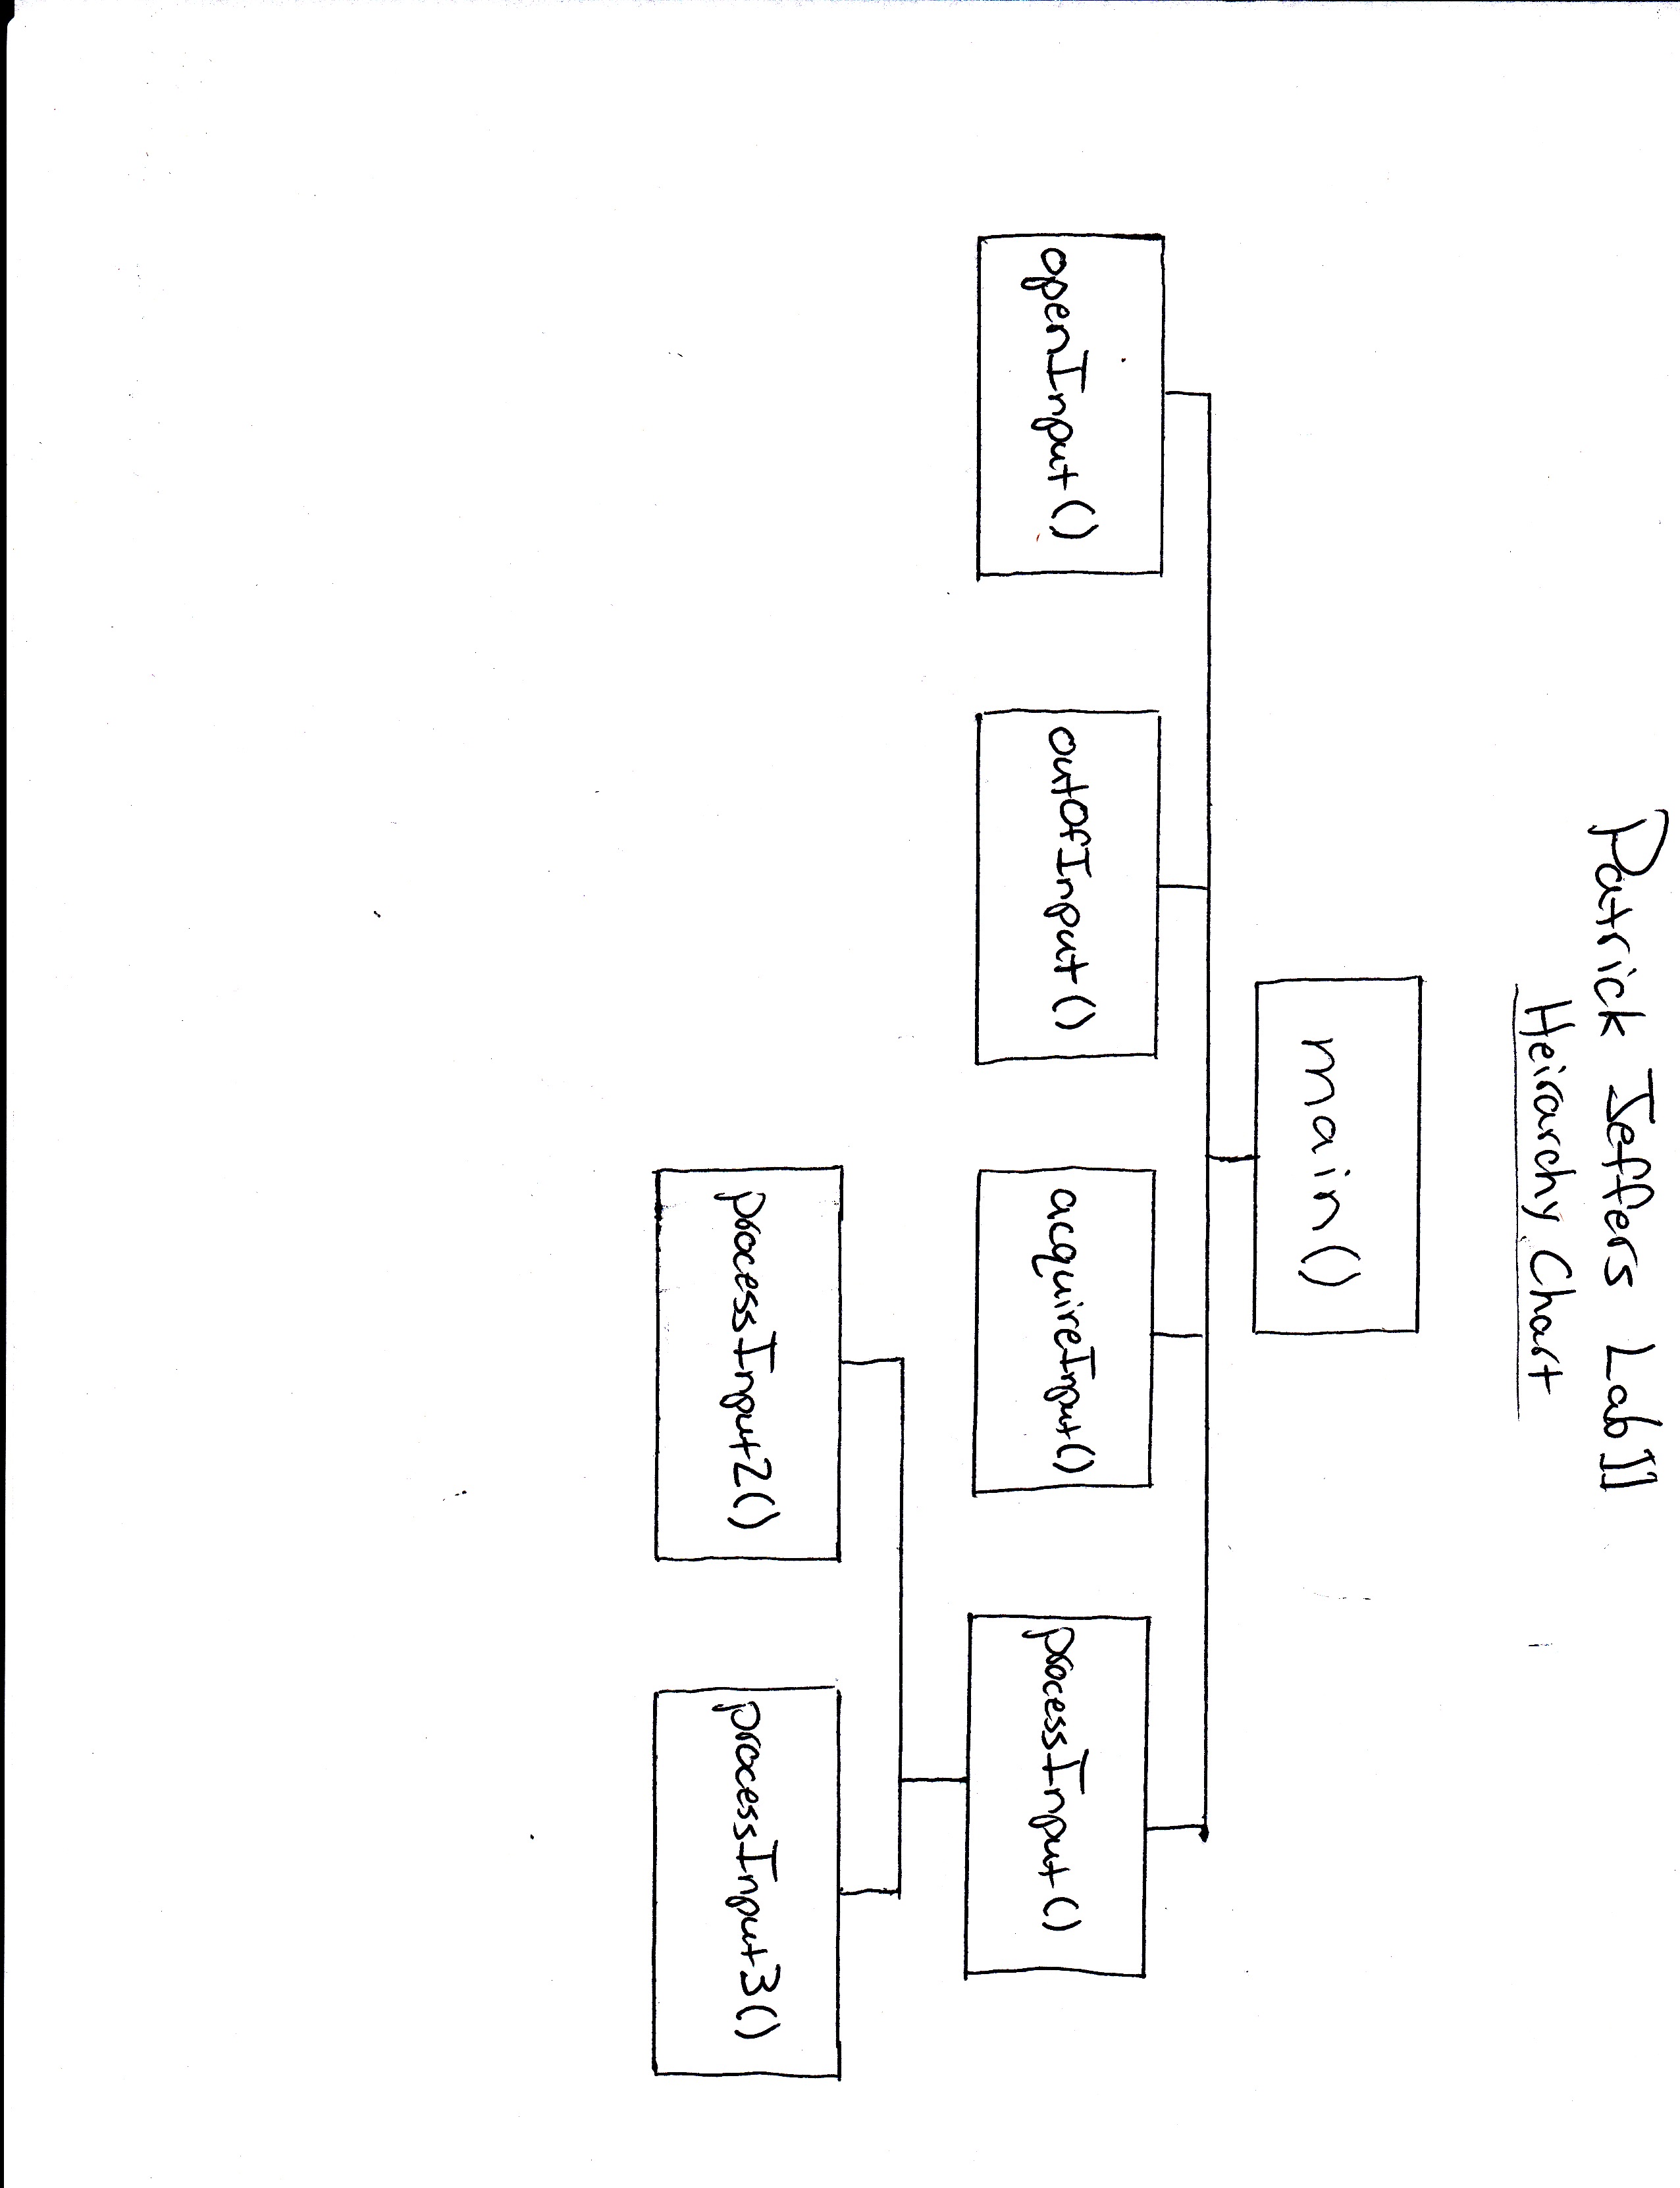 Patrick Jeffers Lab 11
Heirarchy Chart
main()
openInput()
outOfInput()
acquireInput()
processInput()
processInput2()
processInput3()